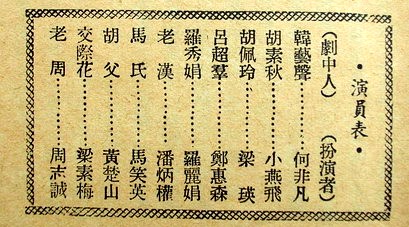 •演員表•
（劇中人）（扮演者）
韓藝聲………何非凡
胡素秋………小燕飛
胡佩玲………梁瑛
呂超羣………鄭惠森
羅秀娟………羅麗娟
老漢………潘炳權
馬氏………馬笑英
胡父………黃楚山
交際花………梁素梅
老周………周志誠